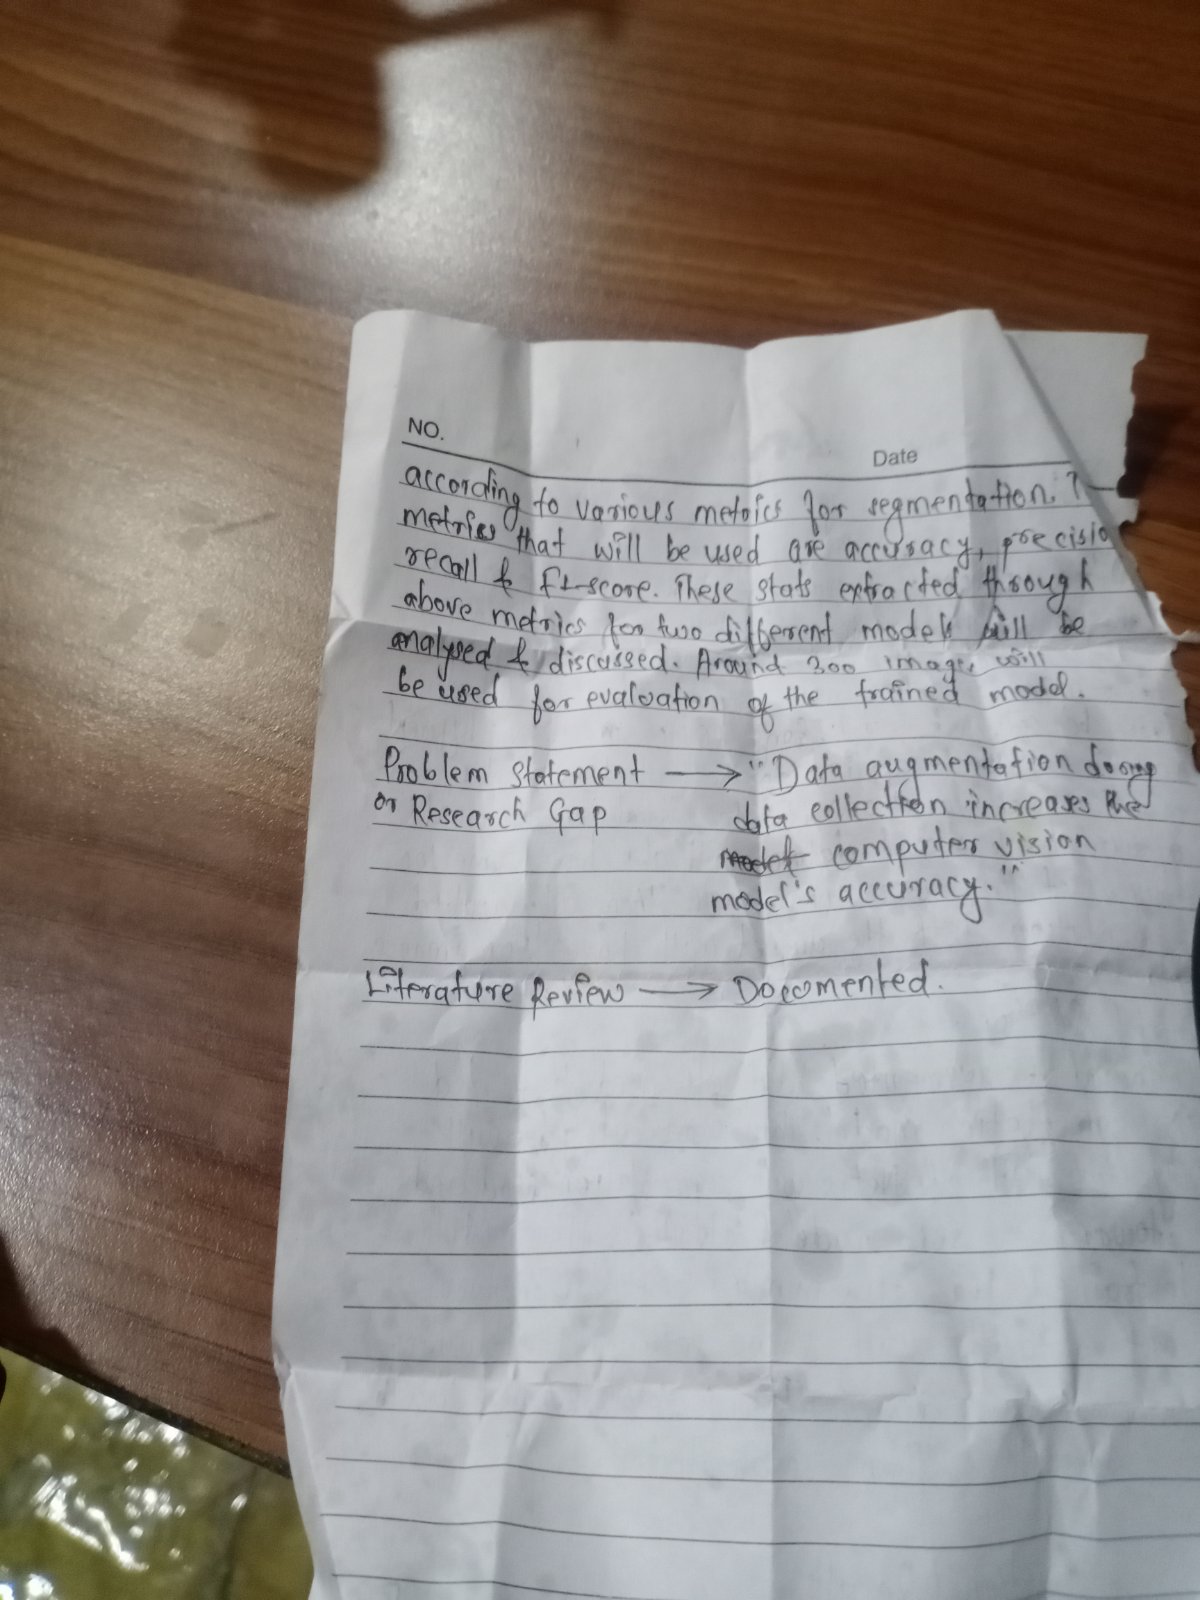 NO.
Date
according to various metrics for segmentation. T
metrics that will be used are accuracy, precisio
recall & F1-score. These stats extracted through
above metrics for two different models will be
analysed & discussed. Around 300 images will
be used for evaluation of the trained model.
Problem Statement → "Data augmentation during
or Research Gap data collection increases the
model computer vision
model's accuracy."
Literature Review → Documented.